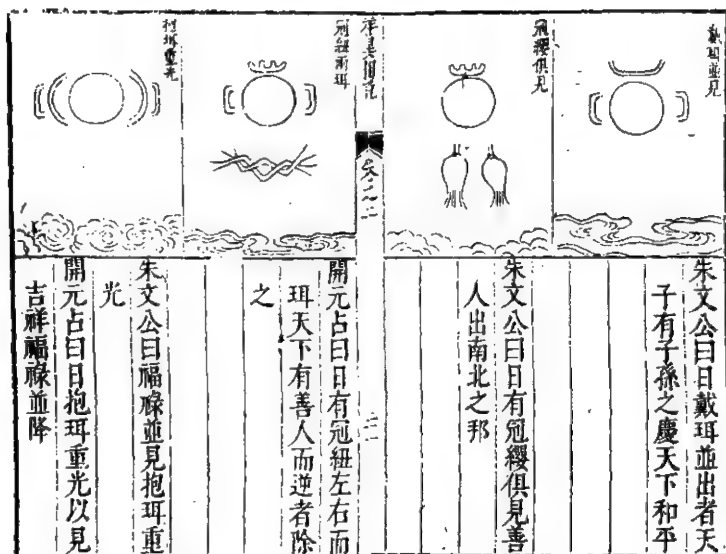 戴珥並見
朱文公曰日戴珥並出者天
子有子孫之慶天下和平
冠纓俱見
朱文公曰日有冠纓俱見善
人出南北之邦
卷之二
冠紐兩珥
開元占曰日有冠紐左右而
珥天下有善人而逆者除
之
抱珥重光
朱文公曰福祿並見抱珥重
光
開元占曰日抱珥重光以見
吉祥福祿並降